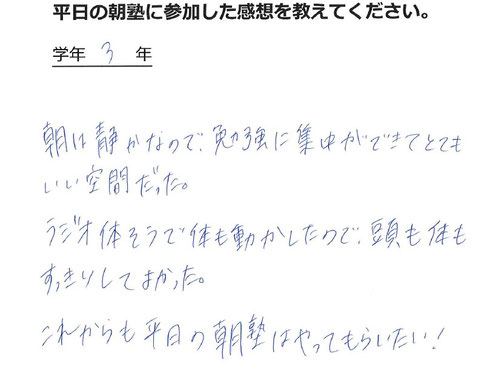 平日の朝塾に参加した感想を教えてください。
学年 3 年
朝は静かなので、勉強に集中ができてとても
いい空間だった。
ラジオ体そうで体も動かしたので、頭も体も
すっきりしてよかった。
これからも平日の朝塾はやってもらいたい!